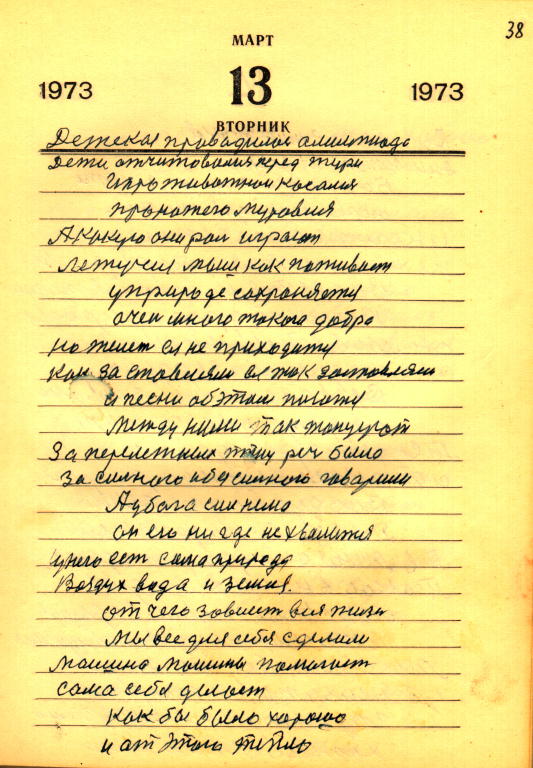 38
МАРТ
1973 13 1973
ВТОРНИК
Детская проводилас алимпиада
Дети отчитовалися перед жури
Игра животной касалися
про нашего муравия
А какую они рол играют
летучия мыши как поживают
у природе сохраняется
очен много такога добра
но жит ся не приходится
как заставляли ся так
и песни об этом
между ними так
За перелетных птиц реч было
За силного и бусилного говарили
А у бога сил немо
он его ни где не хвалится
у него ест сама природа
Воздух вода и земля.
от чего зависит вся жизн
мы все для себя сделали
машина машины помогает
сама себя делает
как бы было хорошо
и от этого